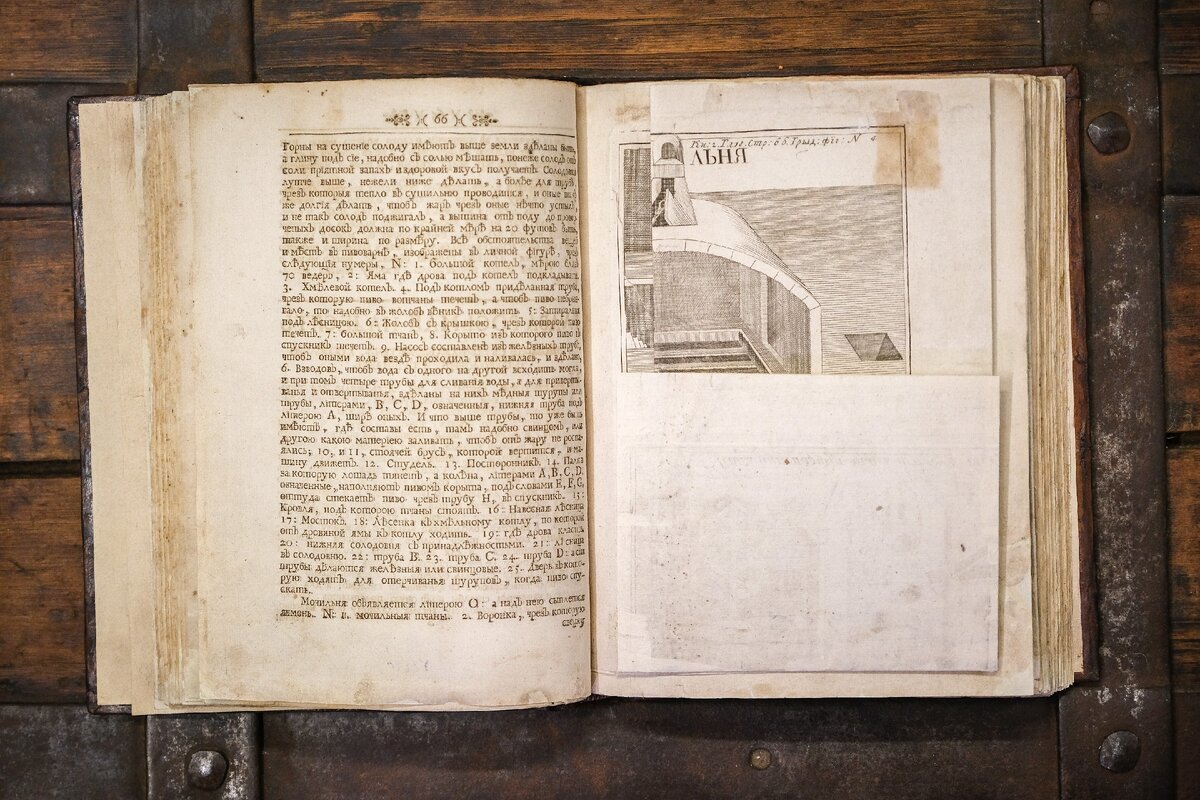 66
Горны на сушенїе солоду имѣютъ выше земли здѣланы быть,
а глину подъ сїе, надобно съ солью мѣшать, понеже солодъ отъ
соли прїятной запахъ и здоровой вкусъ получаетъ. Солодовни
лутче выше, нежели ниже дѣлать, а болѣе для трубъ,
чрезъ которыя тепло въ сушильню проводится, и оные
же долгїя дѣлать, чтобъ жаръ чрезъ оные нѣчто
и не такъ солодъ поджигалъ, а вышина отъ поду до
досокъ должна по крайней мѣрѣ на 20 футовъ быть,
также и ширина по размѣру. Всѣ обстоятельства
и мѣстъ въ пивоварнѣ, изображены въ личной фїгурѣ,
слѣдующїя нумеры, N: 1. большой котелъ, мѣрою
70 ведеръ, 2: Яма гдѣ дрова подъ котелъ подкладывать.
3. Хмѣлевой котелъ. 4. Подъ котломъ придѣланная труба,
чрезъ которую пиво в тчаны течетъ, а чтобъ пиво
то надобно въ жолобъ вѣникъ положить 5:
подъ лѣсницою. 6: Жолобъ съ крышкою, чрезъ которой пиво
течетъ. 7: большой тчанъ, 8. Корыто изъ которого пиво въ
спускникъ течетъ. 9. Насосъ составленъ изъ желѣзныхъ трубъ,
чтобъ оными вода вездѣ проходила и наливалась, и здѣлано
6. Взводовъ, чтобъ вода съ одного на другой всходить могла,
и при томъ четыре трубы для сливанїя воды, а для
и отвертыванья, вдѣланы на нихъ мѣдныя шурупы или
трубы, лїтерами, B, C, D, означенныя, нижняя труба подъ
лїтерою A, ширѣ оныхъ. И что выше трубы, то уже быть
имѣетъ, гдѣ составы есть, тамъ надобно свинцомъ, или
другою какою матерїею заливать, чтобъ отъ жару не
10, и 11, стоячей брусъ, которой вертится, и
шину движетъ. 12. Студель. 13. Посторонникъ. 14. Палка
за которую лошадь тянетъ, а колѣна, лїтерами A, B, C, D.
означенные, наполняютъ пивомъ корыта, подъ словами E, F, G,
оттуда стекаетъ пиво чрезъ трубу H, въ спускникъ. 15:
Кровля, подъ которою тчаны стоятъ. 16: Навесная лѣсница
17: Мостокъ. 18: Лѣсенка къ хмѣльному котлу, по которой
отъ дровяной ямы къ котлу ходить. 19: гдѣ дрова класть.
20: нижняя солодовня съ принадлѣжностьми. 21: лѣсница
въ солодовню. 22: труба B. 23. труба C. 24. труба D: а сїи
трубы дѣлаются желѣзныя или свинцовые. 25. Дверь въ кото-
рую ходятъ для отперчиванья шуруповъ, когда пиво спу-
скать.
Мочильня объявляется лїтерою O: а надъ нею сыплется
ячмень. N: 1. мочильныя тчаны. 2. Воронка, чрезъ которую
сверху
Кн: 2. Глав. Стр: 66. Грыд: фїг: N 4
ЛЬНЯ